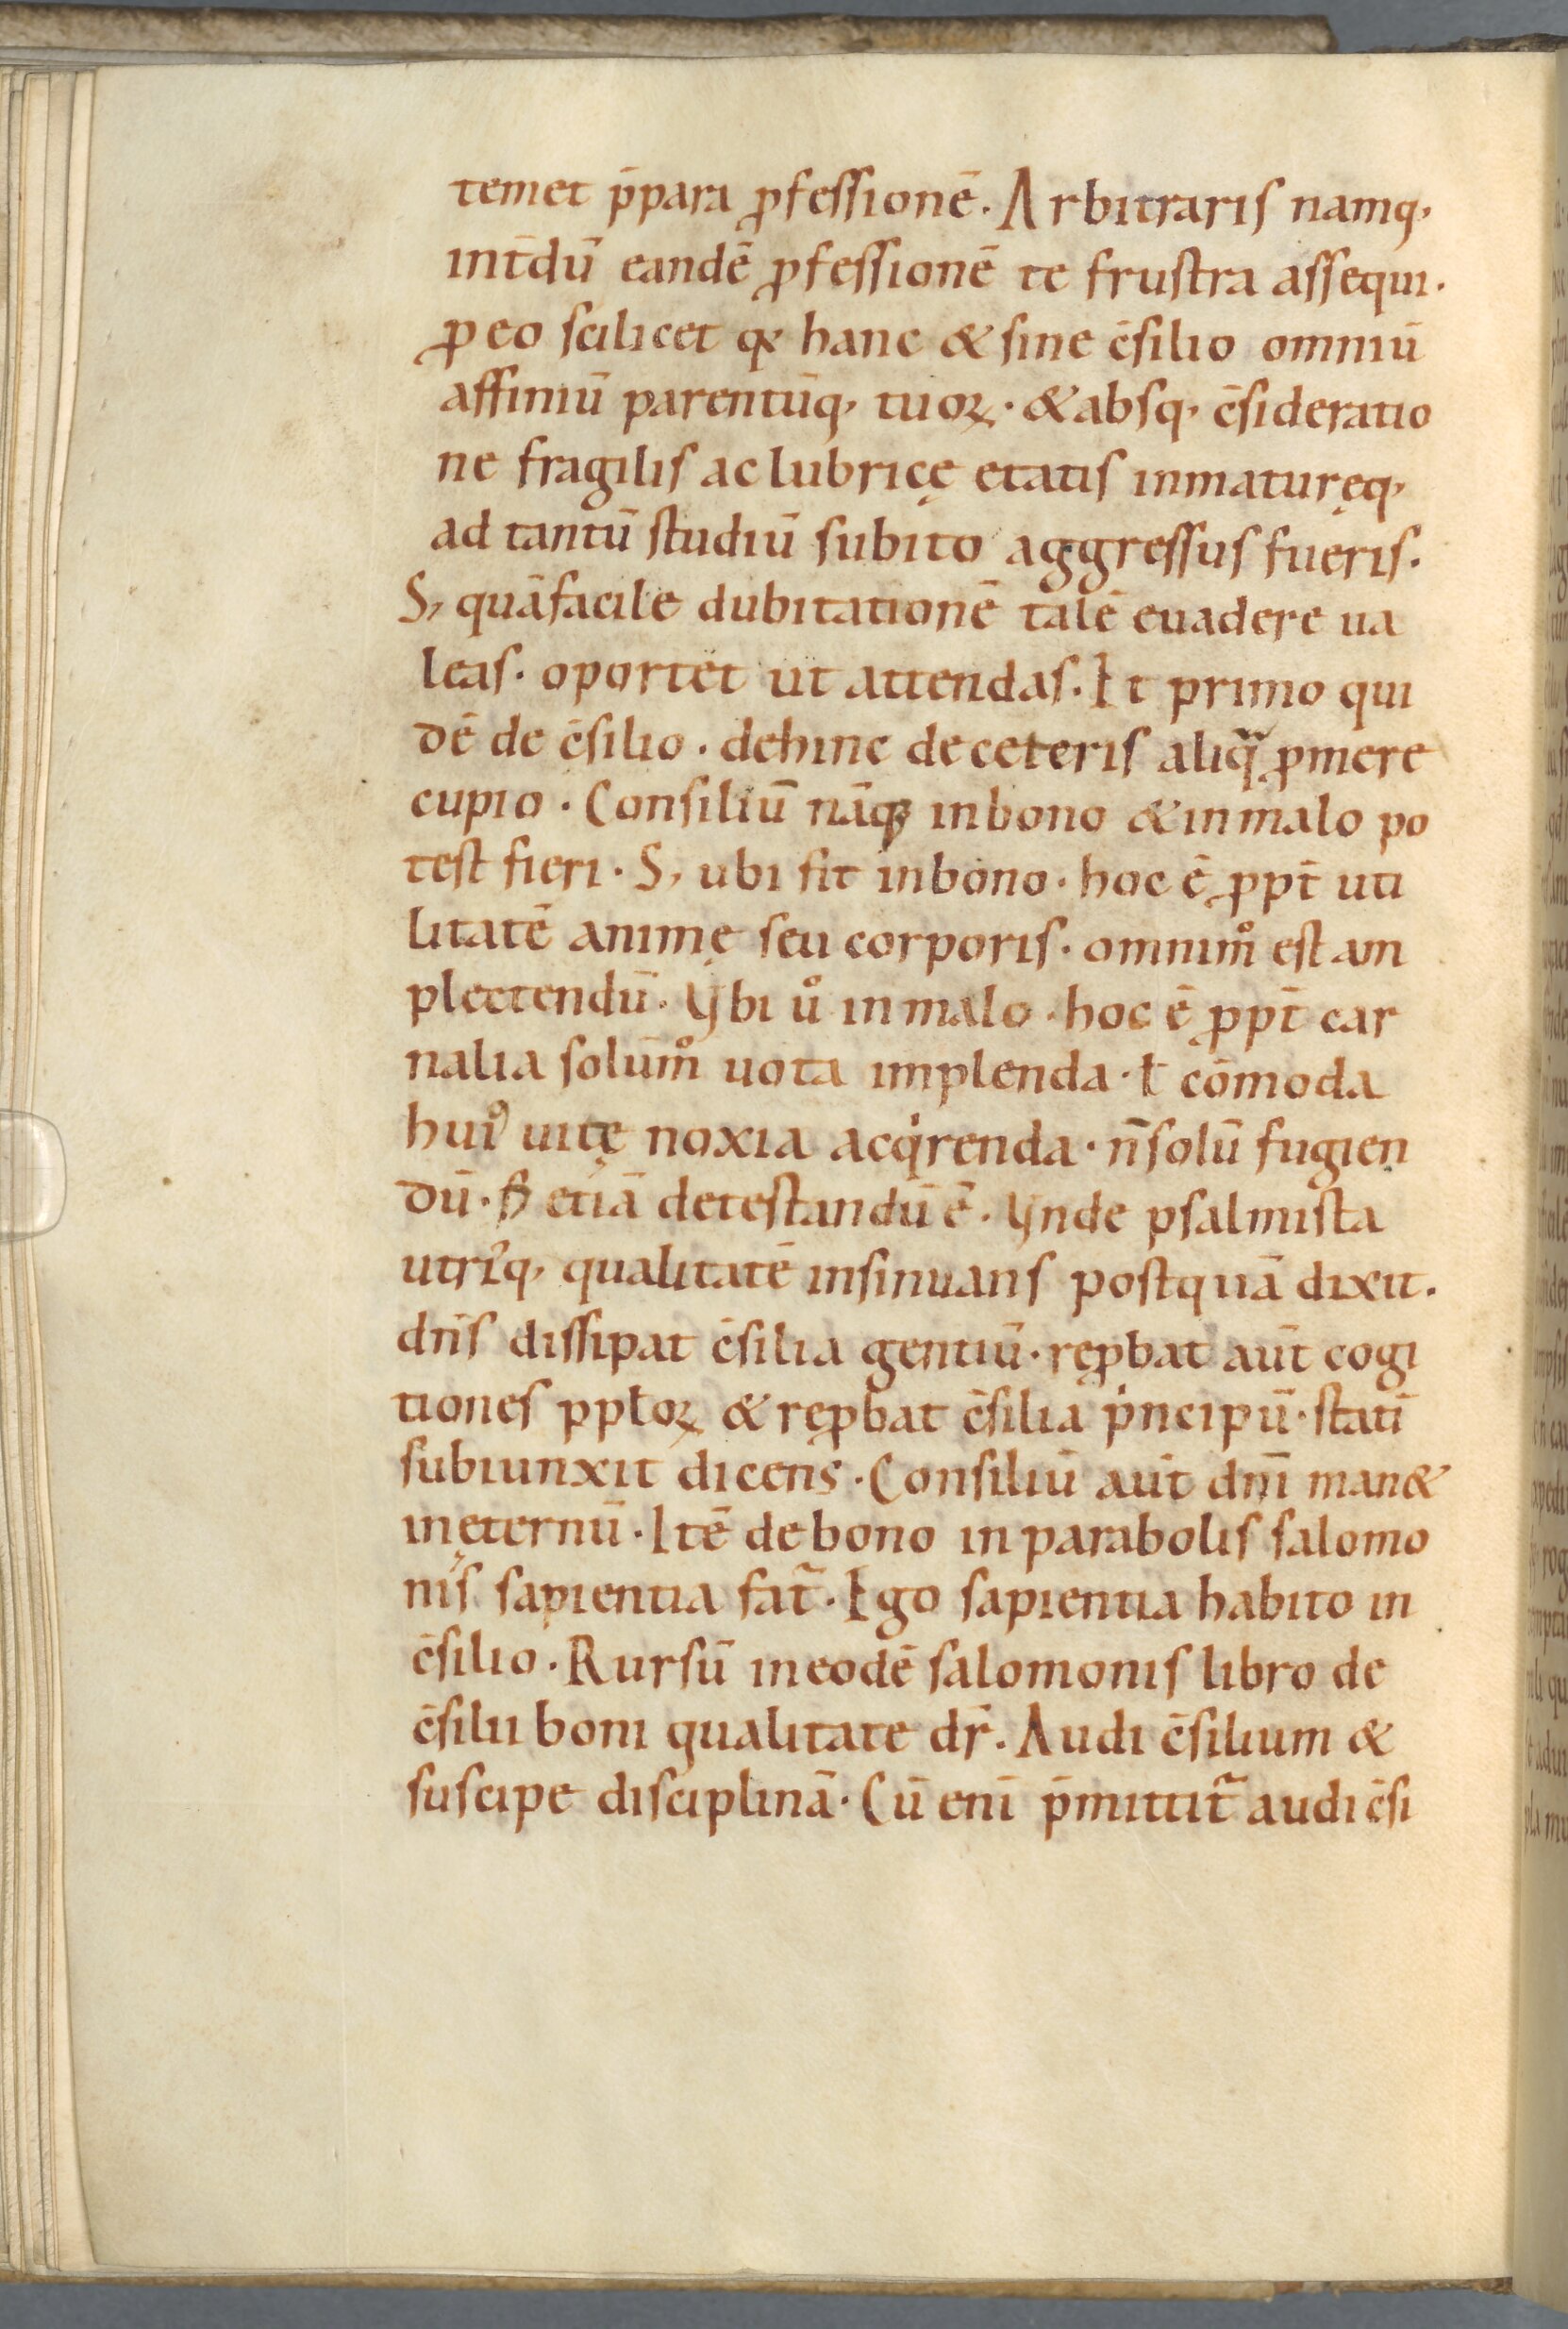 temet p̄para ꝓfessionē. Arbitraris namq,
int̄dū eandē ꝓfessionē te frustra assequi.
ꝓ eo scilicet qꝫ hanc & sine c̄silio omniū
affiniū parentūq, tuoꝝ · & absq, c̄sideratio
ne fragilis ac lubricę etatis inmaturęq,
ad tantū studiū subito aggressus fueris.
S, quāfacile dubitationē talē euadere ua
leas · oportet ut attendas. Et primo qui
dē de c̄silio · dehinc de ceteris aliq̄ ꝓmere
cupio · Consiliū nāqꝫ in bono & in malo po
test fieri · S, ubi fit in bono · hoc ē ꝓpt̄ uti
litatē animę seu corporis · omnimͦ est am
plectendū · Vbi uͦ in malo · hoc ē ꝓpt̄ car
nalia solūmͦ uota implenda · ł cōmoda
huiꝰ uitę noxia acqͥrenda · n̄ solū fugien
dū · ẜ etiā detestandū ē · Vnde psalmista
utriꝰq, qualitatē insinuans postquā dixit.
dn̄s dissipat c̄silia gentiū · reꝓbat aūt cogi
tiones ppłoꝝ & reꝓbat c̄silia pͥncipū · statī
subiunxit dicens · Consiliū aūt dn̄i man&
in ęternū · Itē de bono in parabolis salomo
nis sapientia fat᷑ · Ego sapientia habito in
c̄silio · Rursū in eodē salomonis libro de
c̄silii boni qualitate dr̄. Audi c̄silium &
suscipe disciplinā · Cū enī p̄mittit᷑ audi c̄si